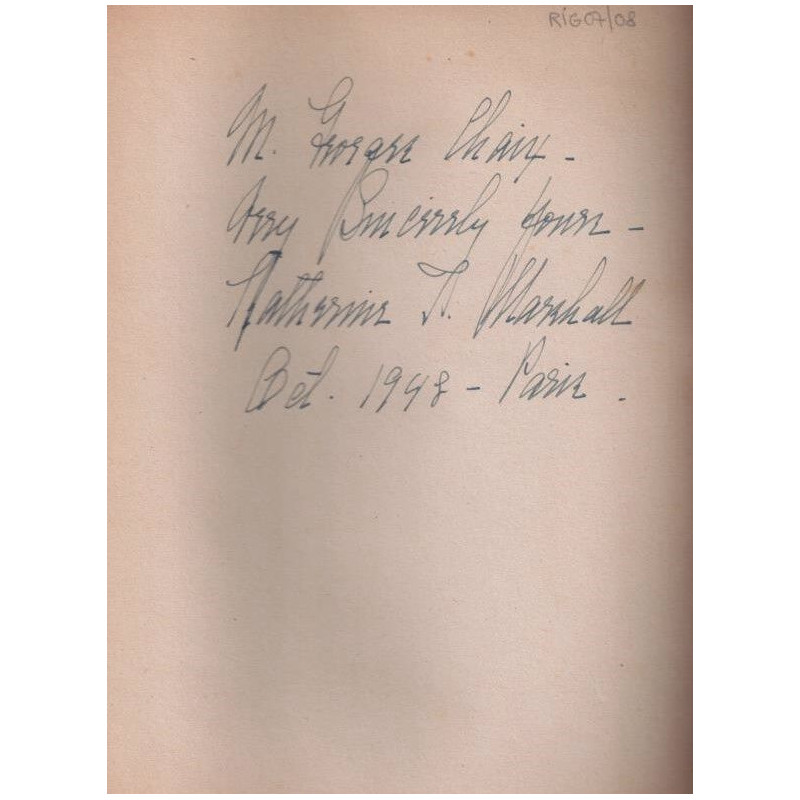 RIG07/08
M. Georges Chaix -
Very Sincerely yours -
Katherine T. Marshall
Oct. 1948 - Paris.